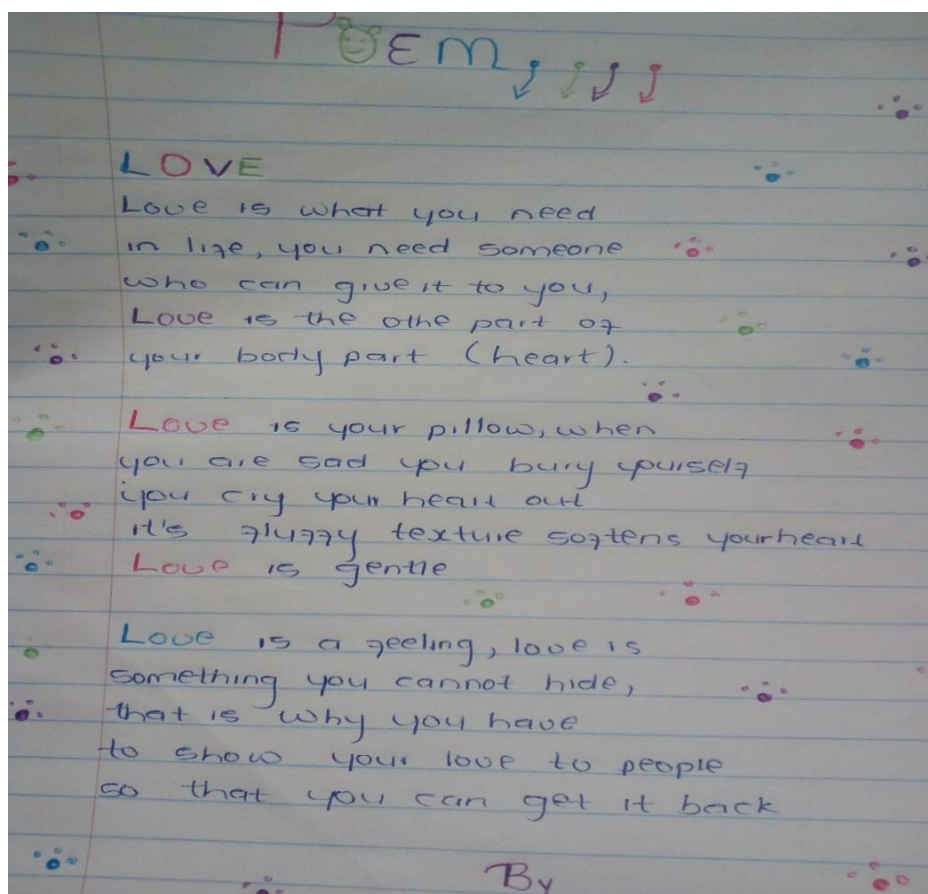 POEM
LOVE
Love is what you need
in life, you need someone
who can give it to you,
Love is the othe part of
your body part (heart).
Love is your pillow, when
you are sad you bury yourself
you cry your heart out
it's fluffy texture softens your heart
Love is gentle
Love is a feeling, love is
something you cannot hide,
that is why you have
to show your love to people
so that you can get it back
By